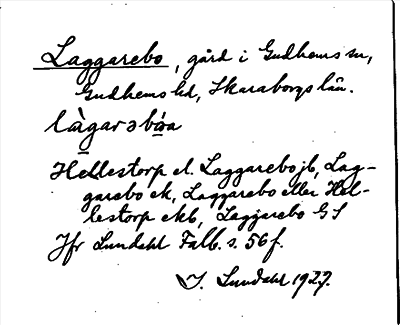 Laggarebo, gård i Gudhems sn,
Gudhems hd, Skaraborgs län.
làgarəbṵa
Hellestorp el. Laggarebo jb, Lag-
garebo ek, Laggarebo eller Hel-
lestorp ekb, Laggarebo GS
Jfr Lundahl Falb. s. 56 f.
I. Lundahl 1927.